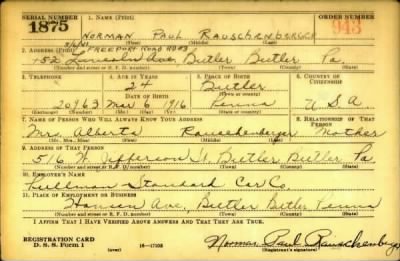 SERIAL NUMBER 1. NAME (Print) ORDER NUMBER
1875 NORMAN PAUL RAUSCHENBERGER 943
(First) (Middle) (Last)
FREEPORT ROAD RD#3
2. ADDRESS (Print)
452 Lincoln Ave Butler Butler Pa
(Number and street or R. F. D. number) (Town) (County) (State)
3. TELEPHONE 4. AGE IN YEARS 5. PLACE OF BIRTH 6. COUNTRY OF CITIZENSHIP
24 Butler
DATE OF BIRTH (Town or county)
20963 Mar 6 1916 Penna U S A
(Exchange) (Number) (Mo.) (Day) (Yr.) (State or country)
7. NAME OF PERSON WHO WILL ALWAYS KNOW YOUR ADDRESS 8. RELATIONSHIP OF THAT PERSON
Mrs. Alberta Rauschenberger Mother
(Mr., Mrs., Miss) (First) (Middle) (Last)
9. ADDRESS OF THAT PERSON
516 W Jefferson St, Butler Butler Pa
(Number and street or R. F. D. number) (Town) (County) (State)
10. EMPLOYER'S NAME
Pullman Standard Car Co
11. PLACE OF EMPLOYMENT OR BUSINESS
Hansen Ave, Butler Butler Penna
(Number and street or R. F. D. number) (Town) (County) (State)
I AFFIRM THAT I HAVE VERIFIED ABOVE ANSWERS AND THAT THEY ARE TRUE.
REGISTRATION CARD
D. S. S. Form 1 16-17105 Norman Paul Rauschenberger
(over) (Registrant's signature)